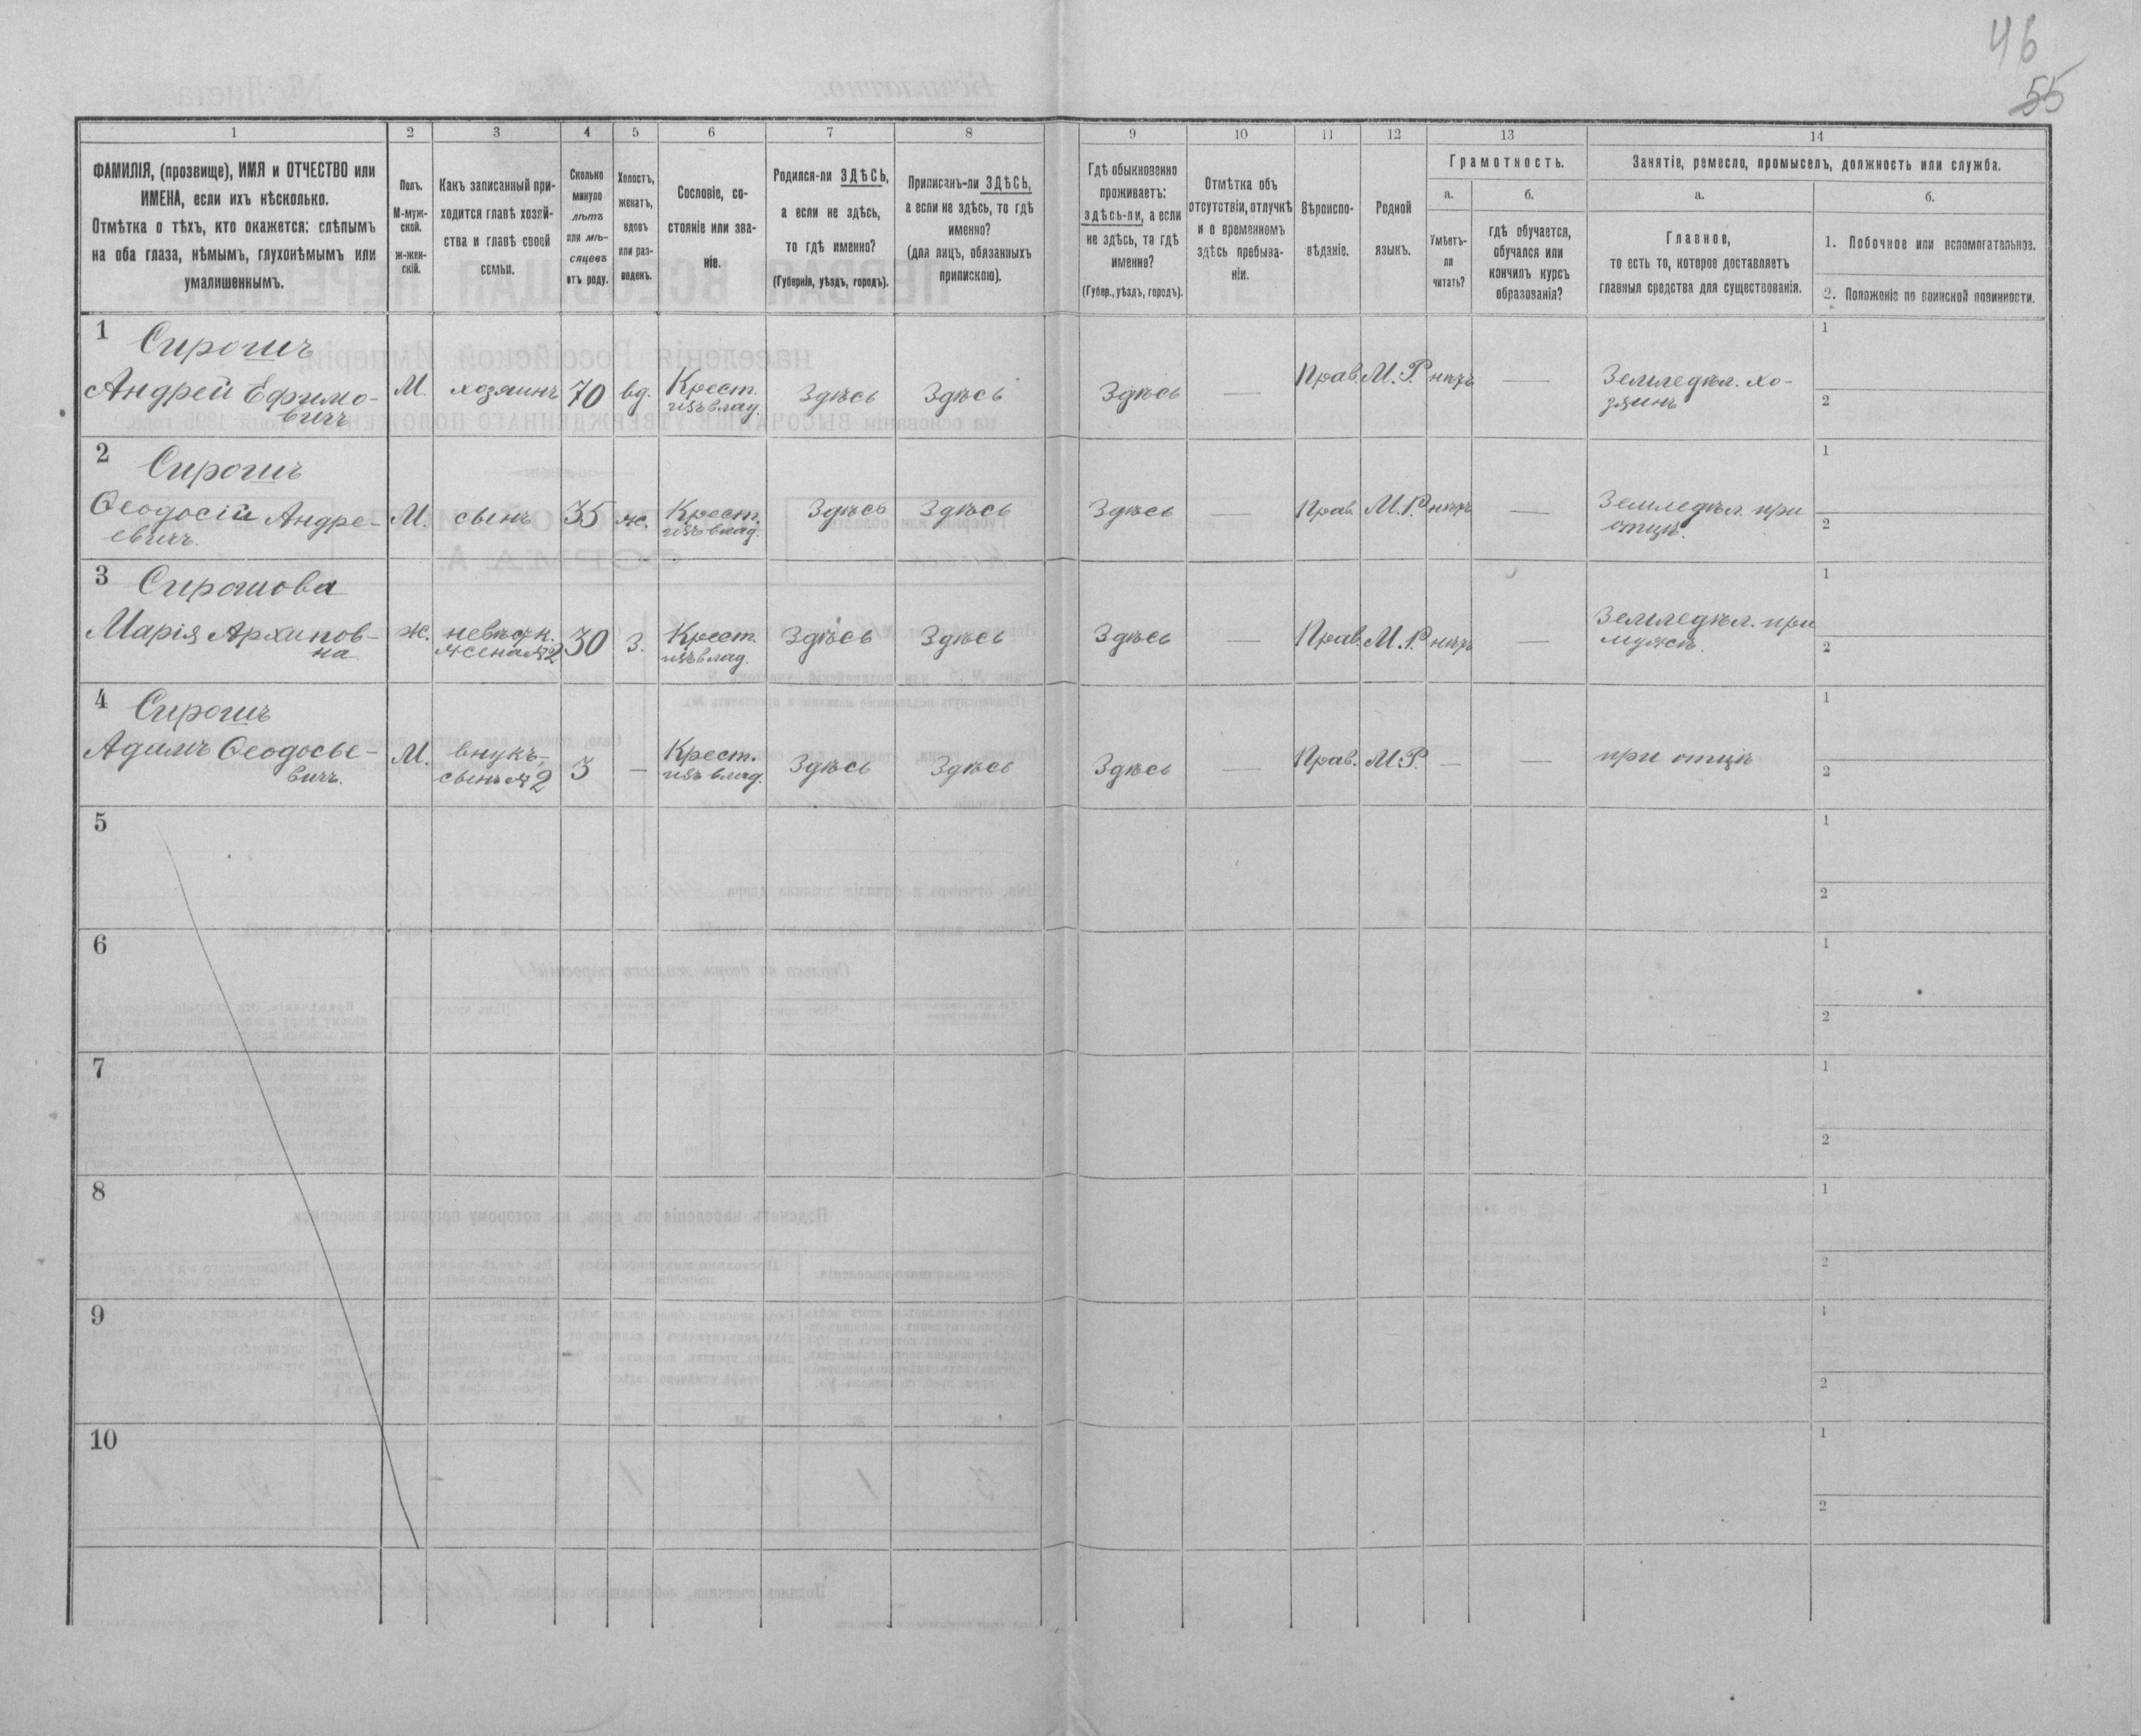 46
55
1
2
3
4
5
6
7
8
9
10
11
12
13
14
ФАМИЛІЯ, (прозвище), ИМЯ и ОТЧЕСТВО или
ИМЕНА, если ихъ нѣсколько.
Отмѣтка о тѣхъ, кто окажется: слѣпымъ
на оба глаза, нѣмымъ, глухонѣмымъ или
умалишеннымъ.
Полъ.
М-муж-
ской.
Ж-жен-
скій.
Какъ записанный при-
ходится главѣ хозяй-
ства и главѣ своей
семьи.
Сколько
минуло
лѣтъ
или мѣ-
сяцевъ
отъ роду.
Холостъ,
женатъ,
вдовъ
или раз-
веденъ.
Сословіе, со-
стояніе или зва-
ніе.
Родился-ли ЗДѢСЬ,
а если не здѣсь,
то гдѣ именно?
(Губернія, уѣздъ, городъ).
Приписанъ-ли ЗДѢСЬ,
а если не здѣсь, то гдѣ
именно?
(для лицъ, обязанныхъ
припискою).
Гдѣ обыкновенно
проживаетъ:
здѣсь-ли, а если
не здѣсь, то гдѣ
именно?
(Губер., уѣздъ, городъ).
Отмѣтка объ
отсутствіи, отлучкѣ
и о временномъ
здѣсь пребыва-
ніи.
Вѣроиспо-
вѣданіе.
Родной
языкъ.
Грамотность.
а.
Умѣетъ-
ли
читать?
б.
гдѣ обучается,
обучался или
кончилъ курсъ
образованія?
Занятіе, ремесло, промыселъ, должность или служба.
а.
Главное,
то есть то, которое доставляетъ
главныя средства для существованія.
б.
1. Побочное или вспомогательное.
2. Положеніе по воинской повинности.
1 Сирошъ
Андрей Ефимо-
вичъ
М. хозяинъ 70 вд. Крест.
изъ влад.
Здѣсь Здѣсь Здѣсь — Прав. М.Р. нѣтъ — Земледѣл. хо-
зяинъ
1
2
2 Сирошъ
Ѳеодосій Андре-
евичъ.
М. сынъ 35 ж. Крест.
изъ влад.
Здѣсь Здѣсь Здѣсь — Прав. М.Р. нѣтъ — Земледѣл. при
отцѣ.
1
2
3 Сирошова
Марія Архипов-
на
Ж. невѣстк.
жена №2
30 З. Крест.
изъ влад.
Здѣсь Здѣсь Здѣсь — Прав. М.Р. нѣтъ — Земледѣл. при
мужѣ.
1
2
4 Сирошъ
Адамъ Ѳеодосье-
вичъ.
М. внукъ,
сынъ №2
3 — Крест.
изъ влад.
Здѣсь Здѣсь Здѣсь — Прав. М.Р. — — при отцѣ
1
2
5
1
2
6
1
2
7
1
2
8
1
2
9
1
2
10
1
2